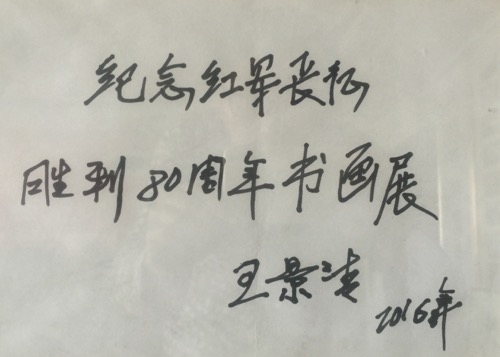 纪念红军长征
胜利80周年书画展
王景清
2016年